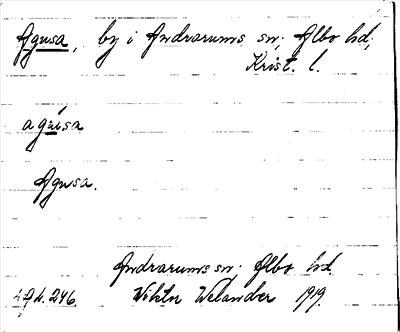 Agusa, by i Andrarums sn; Albo hd,
Krist. l.
agúsa
Agusa.
Andrarums sn; Albo hd.
Ad. 246. Viktor Welander 1919.